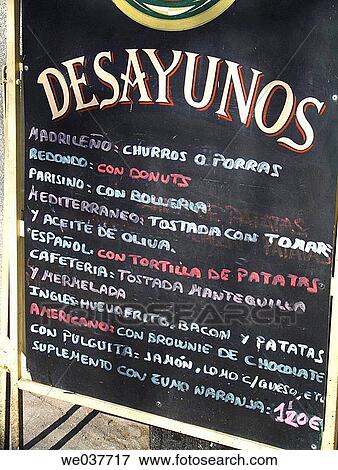 DESAYUNOS
MADRILEÑO: CHURROS O PORRAS
REDONDO: CON DONUTS
PARISINO: CON BOLLERIA
MEDITERRANEO: TOSTADA CON TOMATE
Y ACEITE DE OLIVA.
ESPAÑOL: CON TORTILLA DE PATATAS
CAFETERIA: TOSTADA MANTEQUILLA
Y MERMELADA
INGLES: HUEVO FRITO, BACON Y PATATAS
AMERICANO: CON BROWNIE DE CHOCOLATE
CON PULGUITA: JAMÓN, LOMO C/QUESO, ETC
SUPLEMENTO CON ZUMO NARANJA: 1'20€
FOTOSEARCH
we037717 www.fotosearch.com